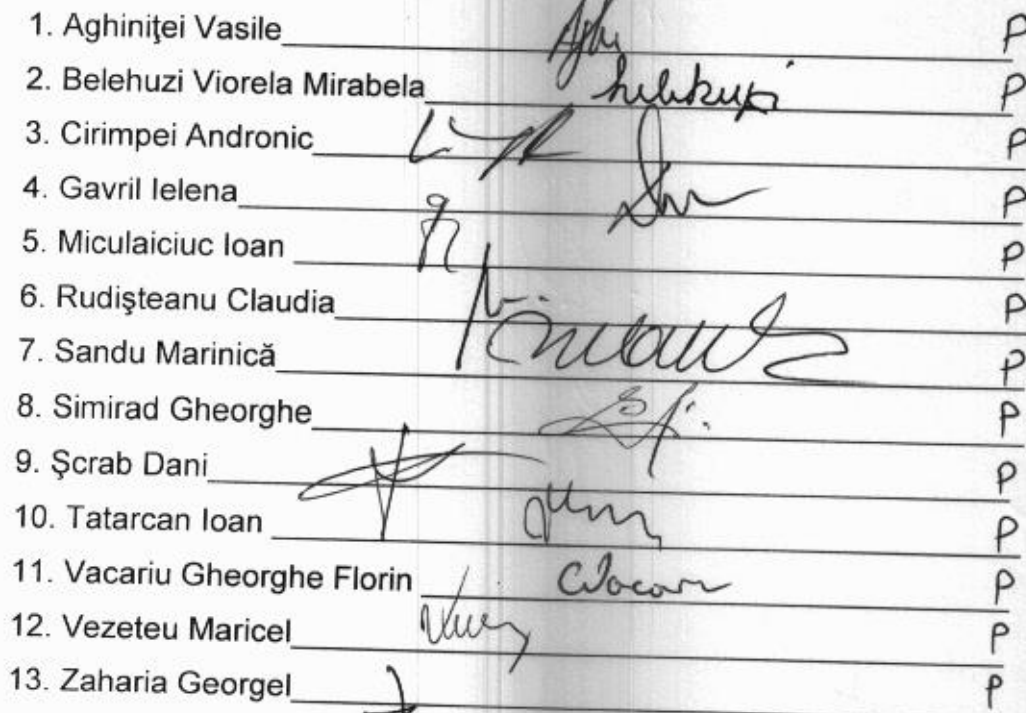 1. Aghiniţei Vasile P
2. Belehuzi Viorela Mirabela P
3. Cirimpei Andronic P
4. Gavril Ielena P
5. Miculaiciuc Ioan P
6. Rudişteanu Claudia P
7. Sandu Marinică P
8. Simirad Gheorghe P
9. Şcrab Dani P
10. Tatarcan Ioan P
11. Vacariu Gheorghe Florin P
12. Vezeteu Maricel P
13. Zaharia Georgel P